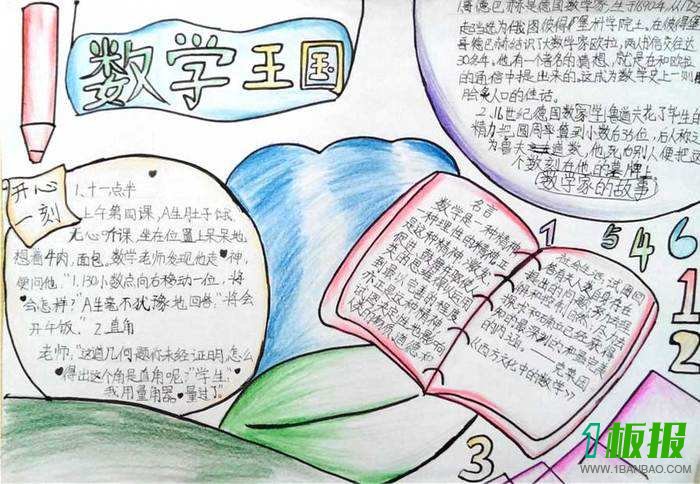 数学王国
开心
一刻
1、十一点半
上午第四课,A生肚子饿,
无心听课,坐在位置上呆呆地
想着牛肉,面包。数学老师发现他走神,
便问他,"1.130小数点向右移动一位,将
会怎样?"A生毫不犹豫地回答:"将会
开午饭。" 2.直角
老师:"这道几何题你未经证明,怎么
得出这个角是直角呢?"学生:"
我用量角器量过了"
哥德巴赫是德国数学家,生于1690年,从1725
起当选为俄国彼得堡科学院士,在彼得堡
哥德巴赫结识了大数学家欧拉,两人书信交往达
30多年,他有一个著名的猜想,就是在和欧拉
的通信中提出来的。这成为数学史上一则
脍炙人口的佳话。
2、16世纪德国数学家鲁道夫花了毕生的
精力,把圆周率算到小数后35位,后人称之
为鲁道夫数,他死后别人便把这
个数刻在他的墓碑上
(数学家的故事)
名言
数学是一种精神,
一种理性的精神。正
是这种精神,激发,
促进,鼓舞并驱使人
类的思维得以运用
到最完善的程度,
亦正是这种精神,
试图决定性地影响
人类的物质,道德和
社会生活;试图回
答有关人类自身存在
提出的问题;努力去理
解和控制自然;尽力去
探求和确立已经获得
知识的最深刻的和最完美
的内涵。——克莱因
《西方文化中的数学》
1 5 4 6
1
2
3
1板报
WWW.1BANBAO.COM